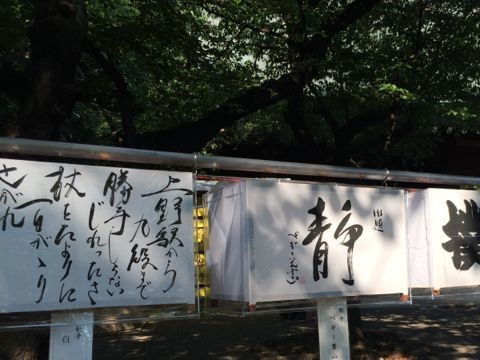 上野駅から
九段まで
勝手しらない
じれったさ
杖をたよりに
一日がゝり
せがれ
歌手
白
静
歌手
ペギー葉山